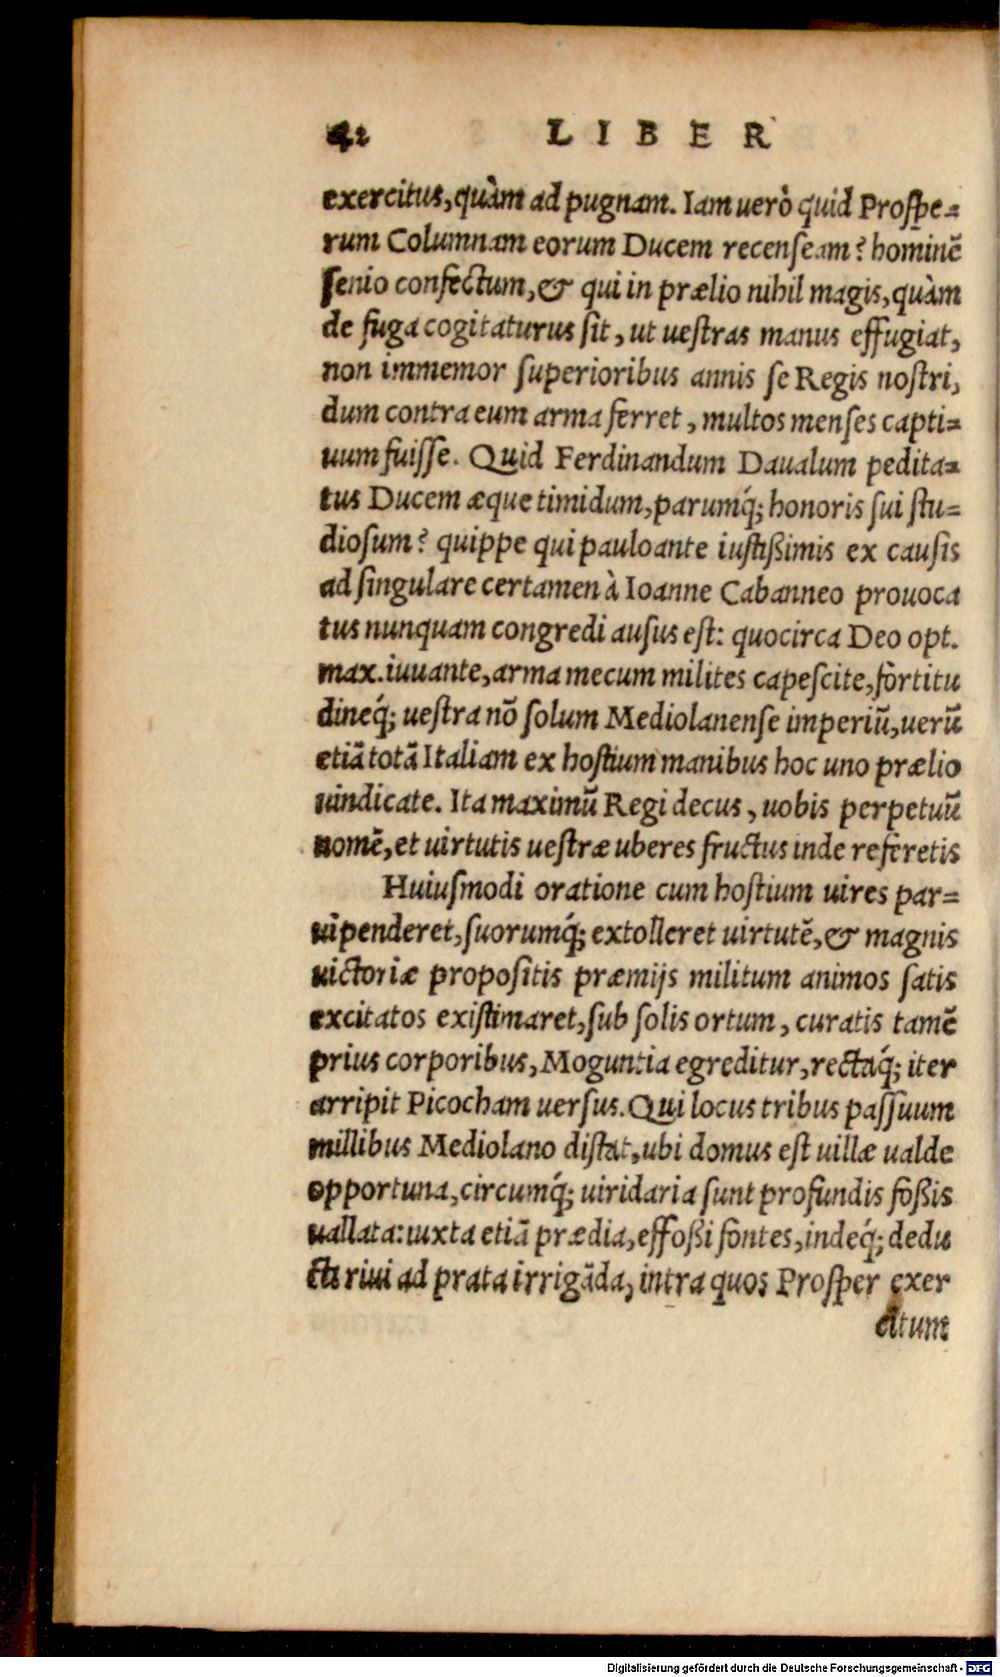 42 LIBER
exercitus, quàm ad pugnam. Iam uerò quid Prospe=
rum Columnam eorum Ducem recenseam? hominē
senio confectum, & qui in prælio nihil magis, quàm
de fuga cogitaturus sit, ut uestras manus effugiat,
non immemor superioribus annis se Regis nostri,
dum contra eum arma ferret, multos menses capti=
uum fuisse. Quid Ferdinandum Daualum pedita=
tus Ducem æque timidum, parumq́; honoris sui stu=
diosum? quippe qui pauloante iustißimis ex causis
ad singulare certamen à Ioanne Cabanneo prouoca
tus nunquam congredi ausus est: quocirca Deo opt.
max. iuuante, arma mecum milites capescite, fortitu
dineq́; uestra nō solum Mediolanense imperiū, uerū
etiā totā Italiam ex hostium manibus hoc uno prælio
uindicate. Ita maximū Regi decus, uobis perpetuū
nomē, et uirtutis uestræ uberes fructus inde referetis
Huiusmodi oratione cum hostium uires par=
uipenderet, suorumq́; extolleret uirtutē, & magnis
uictoriæ propositis præmijs militum animos satis
excitatos existimaret, sub solis ortum, curatis tamē
prius corporibus, Moguntia egreditur, rectaq́; iter
arripit Picocham uersus. Qui locus tribus passuum
millibus Mediolano distat, ubi domus est uillæ ualde
opportuna, circumq́; uiridaria sunt profundis foßis
uallata: iuxta etiā prædia, effoßi fontes, indeq́; dedu
cti riui ad prata irrigāda, intra quos Prosper exer
citum
Digitalisierung gefördert durch die Deutsche Forschungsgemeinschaft - DFG